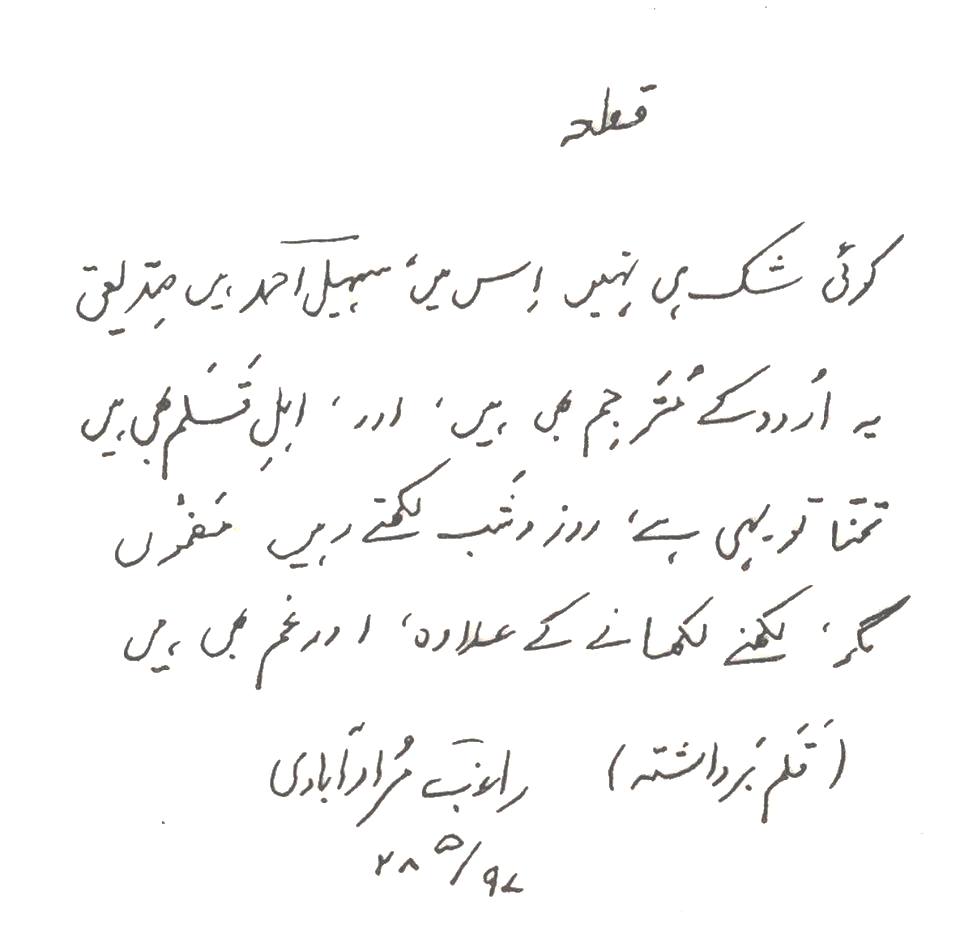 قطعہ
کوئی شک ہی نہیں اِس میں، سہیل احمد ہیں صِدّیقی
یہ اُردو کے مُتَرجِم بھی ہیں، اور، اہلِ قَلَم بھی ہیں
تمنّا تو یہی ہے، روز و شَب لکھتے رہیں مَضموں
مگر، لکھنے لکھانے کے علاوہ، اور غم بھی ہیں
(قَلَم بَرداشتہ) راغب مُرادآبادی
۲۸ ۵/۹۷